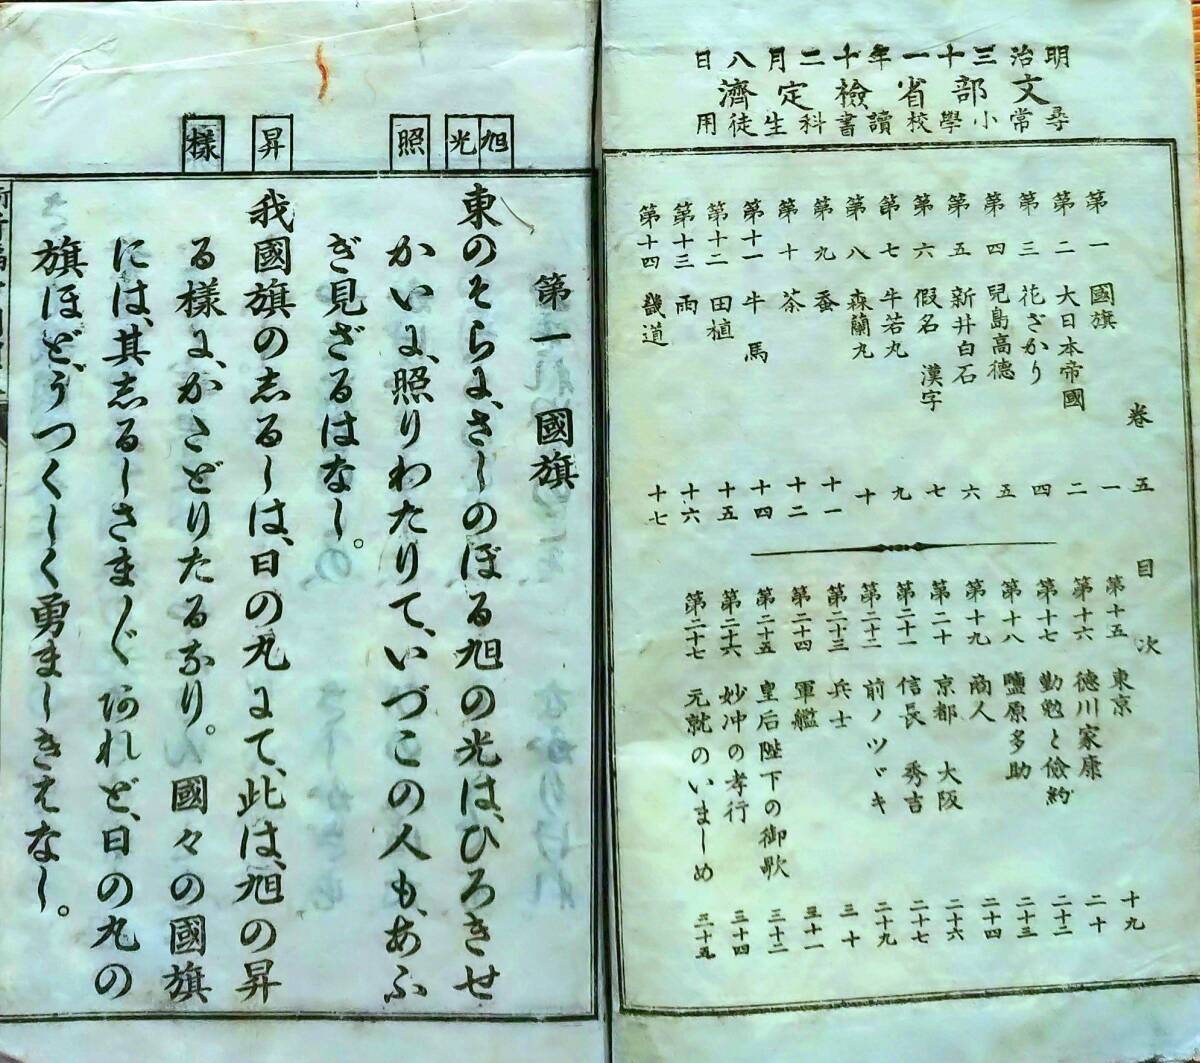 明治三十一年十二月八日
文部省檢定濟
尋常小學校讀書科生徒用
卷五目次
第一 國旗 一
第二 大日本帝國 二
第三 花ざかり 四
第四 兒島高德 五
第五 新井白石 六
第六 假名 漢字 七
第七 牛若丸 九
第八 森蘭丸 十
第九 蚕 十一
第十 茶 十二
第十一 牛 馬 十四
第十二 田植 十五
第十三 雨 十六
第十四 鐵道 十七
第十五 東京 十九
第十六 德川家康 二十
第十七 勤勉と儉約 二十二
第十八 鹽原多助 二十三
第十九 商人 二十四
第二十 京都 大阪 二十六
第二十一 信長 秀吉 二十七
第二十二 前ノツヾキ 二十九
第二十三 兵士 三十
第二十四 軍艦 三十一
第二十五 皇后陛下の御歌 三十二
第二十六 妙冲の孝行 三十四
第二十七 元就のいましめ 三十五
旭光
照
昇
樣
第一 國旗
東のそらに、さしのぼる旭の光は、ひろきせ
かいに、照りわたりて、いづこの人も、あふ
ぎ見ざるはなし。
我國旗のしるしは、日の丸にて、此は、旭の昇
る樣に、かたどりたるなり。國々の國旗
には、其しるしさま〴〵あれど、日の丸の
旗ほど、うつくしく勇ましきはなし。